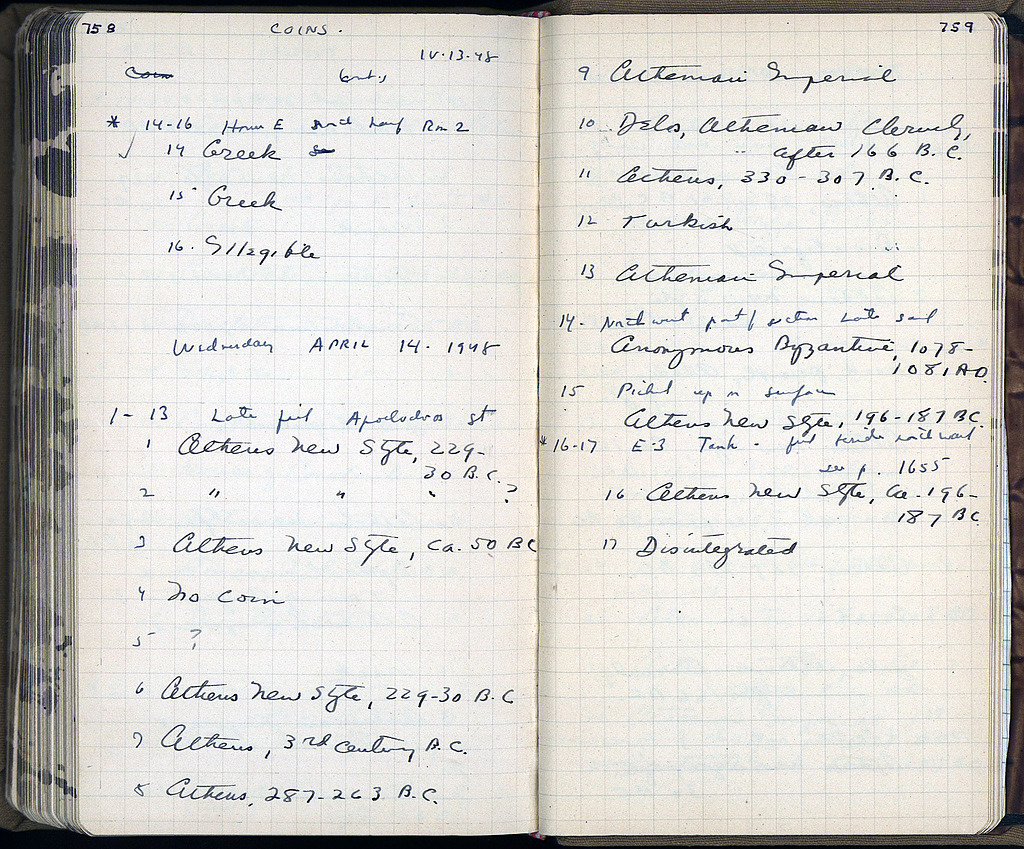 758
COINS.
IV-13-48
Coins
cont.
* 14-16 House E north half Rm 2
✓ 14 Greek
15 Greek
16. Illegible
Wednesday APRIL 14. 1948
1-13 Late fill Apollodoros St
1 Athens New Style, 229-
30 B.C.
2 " " " ?
3 Athens New Style, ca. 50 BC
4 No coin
5 ?
6 Athens New Style, 229-30 B.C
7 Athens, 3rd century B.C.
8 Athens, 287-263 B.C.
759
9 Athenian Imperial
10 Delos, Athenian Cleruchy,
after 166 B.C.
11 Athens, 330-307 B.C.
12 Turkish
13 Athenian Imperial
14- Northwest part of section Late
Anonymous Byzantine, 1078-
1081 AD.
15 Picked up on surface
Athens New Style, 196-187 BC.
* 16-17 E-3 Tank - fill
see p. 1655
16 Athens New Style, ca. 196-
187 BC
17 Disintegrated